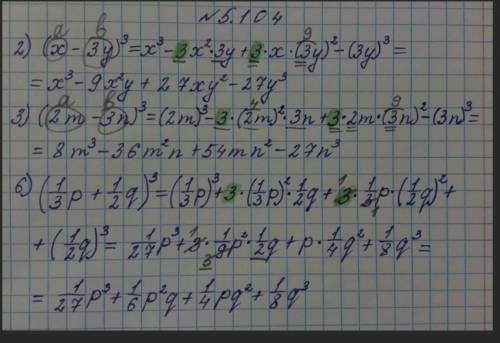 №5.104
a b 9
2) (x - 3y)³ = x³ - 3x²·3y + 3·x·(3y)² - (3y)³ =
= x³ - 9x²y + 27xy² - 27y³
a b 4 9
3) (2m - 3n)³ = (2m)³ - 3·(2m)²·3n + 3·2m·(3n)² - (3n)³ =
= 8m³ - 36m²n + 54mn² - 27n³
6) (1/3p + 1/2q)³ = (1/3p)³ + 3·(1/3p)²·1/2q + 3·1/3p·(1/2q)² +
+ (1/2q)³ = 1/27p³ + 3·1/9p²·1/2q + p·1/4q² + 1/8q³ =
= 1/27p³ + 1/6p²q + 1/4pq² + 1/8q³